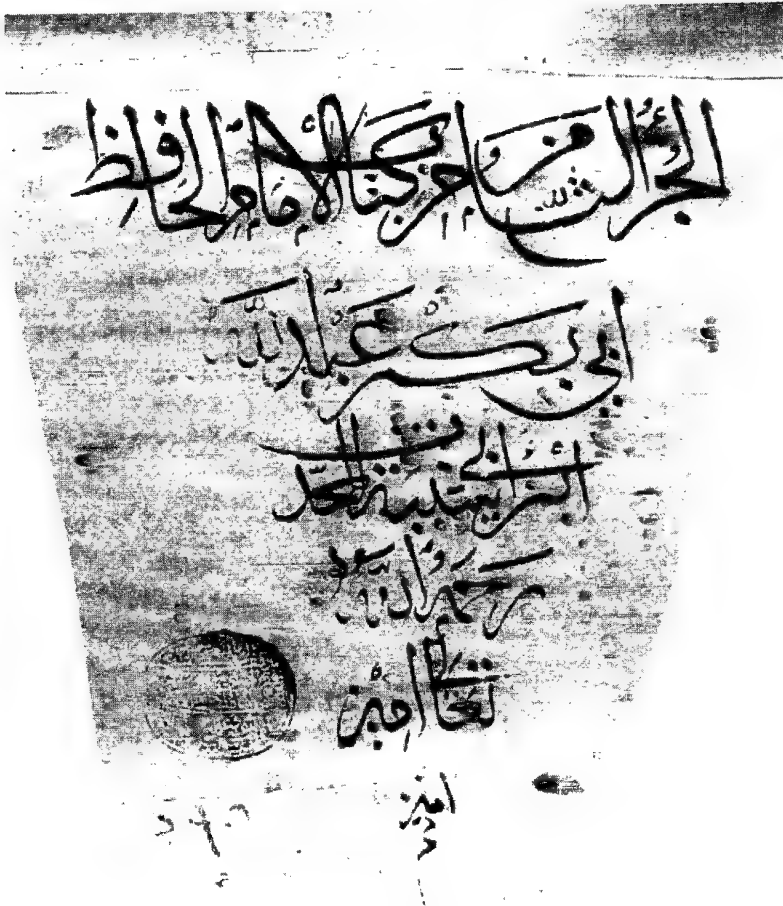 الجزؤ الثامن واخر كتاب الامام الحافظ
ابي بكر عبد الله
ابن ابي شيبة المحدث
رحمه الله
تعالى امين
امين